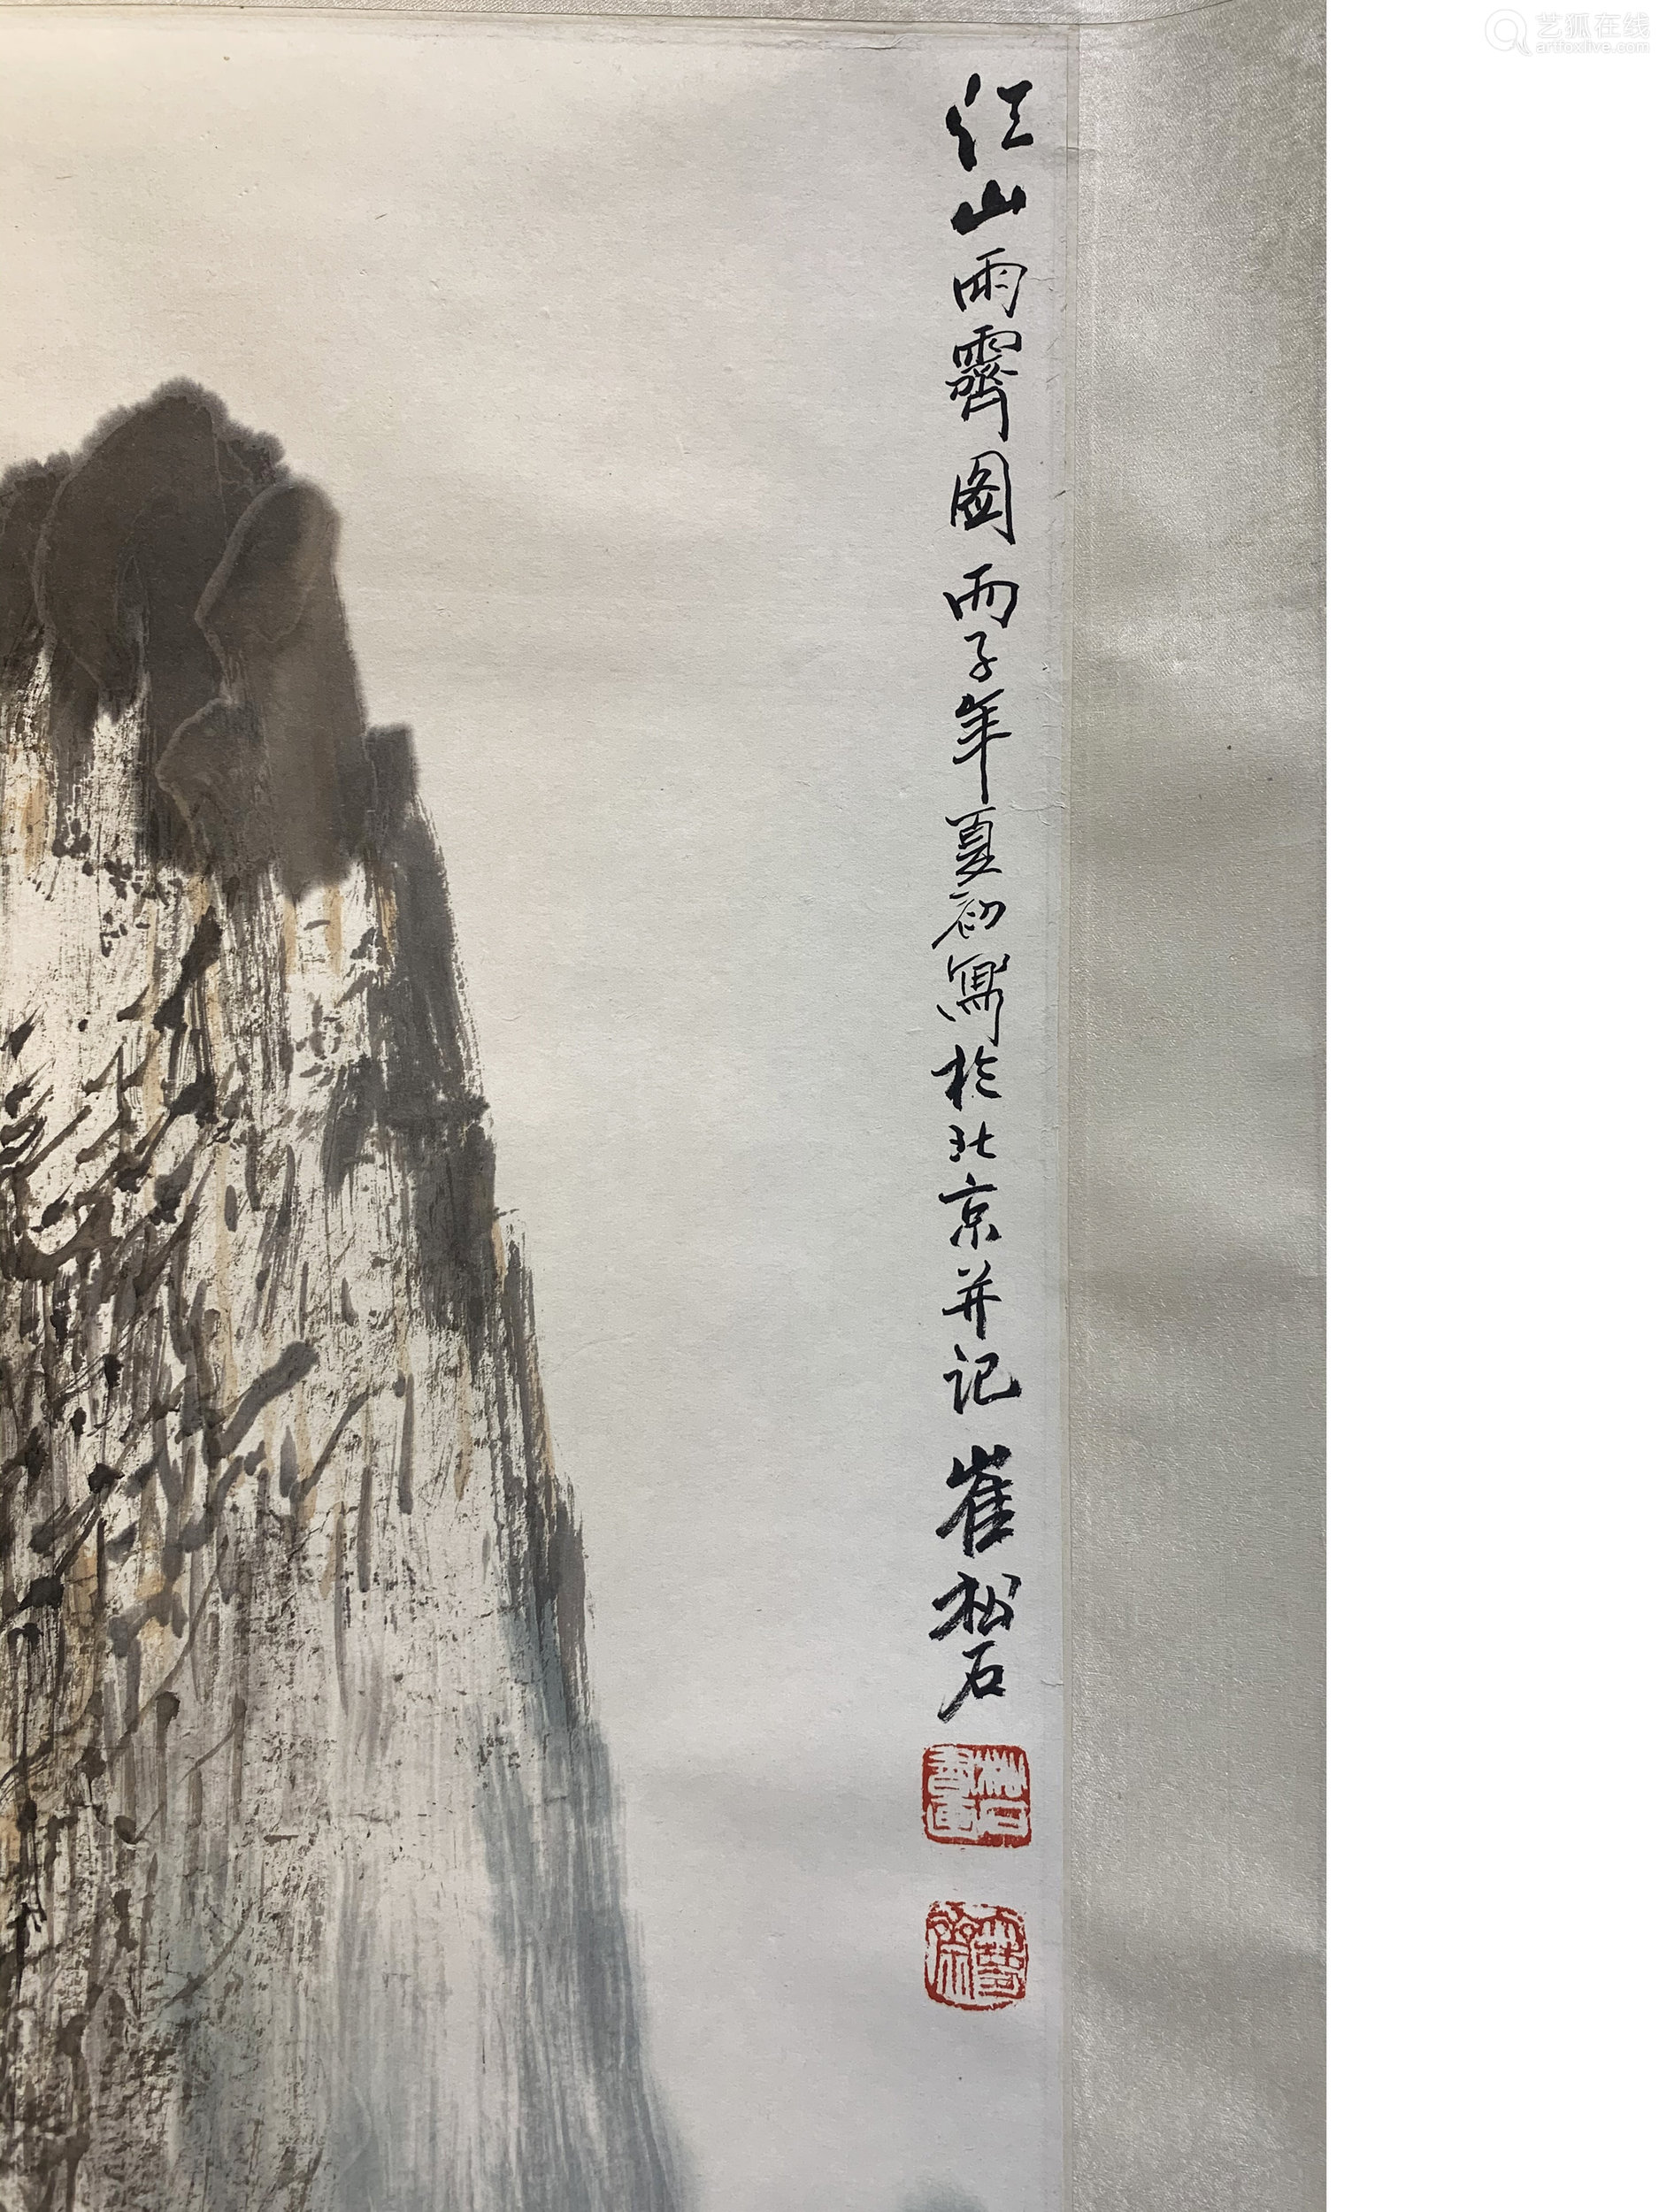 江山雨霽圖丙子年夏初寫於北京并记崔松石
松石
書畫
艺狐在线
artfoxlive.com